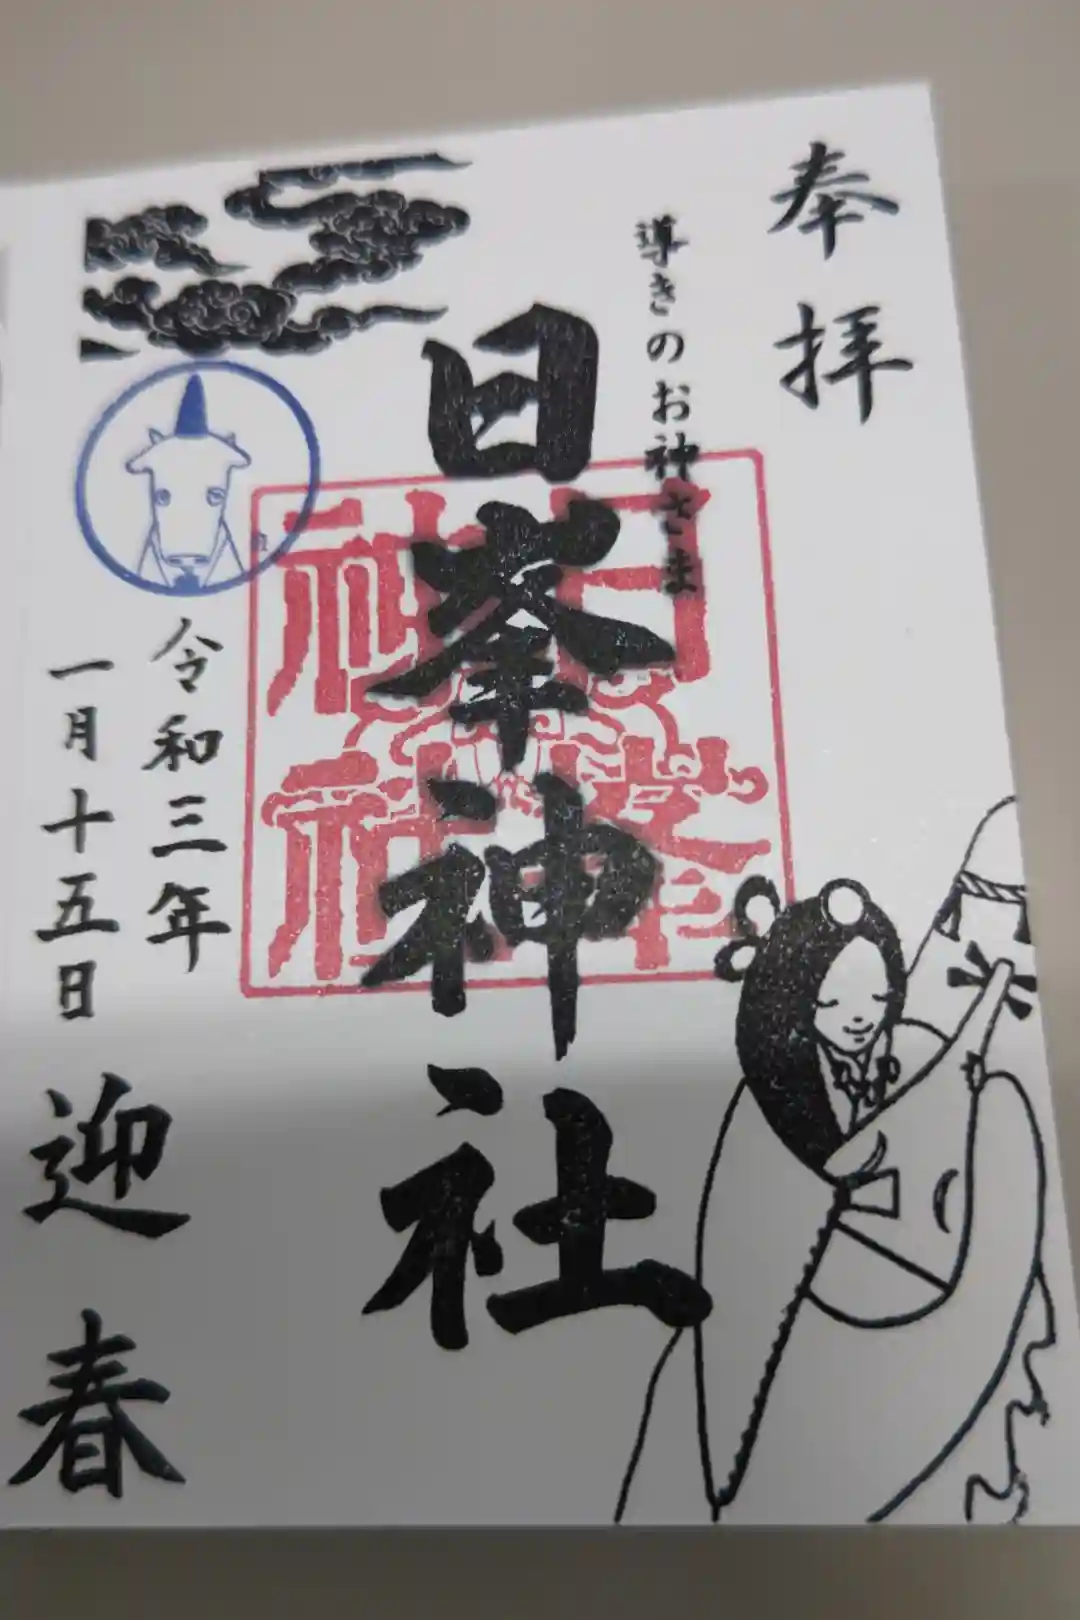 奉拝
導きのお神さま
日峯神社
日峯神社
令和三年
一月十五日
迎春